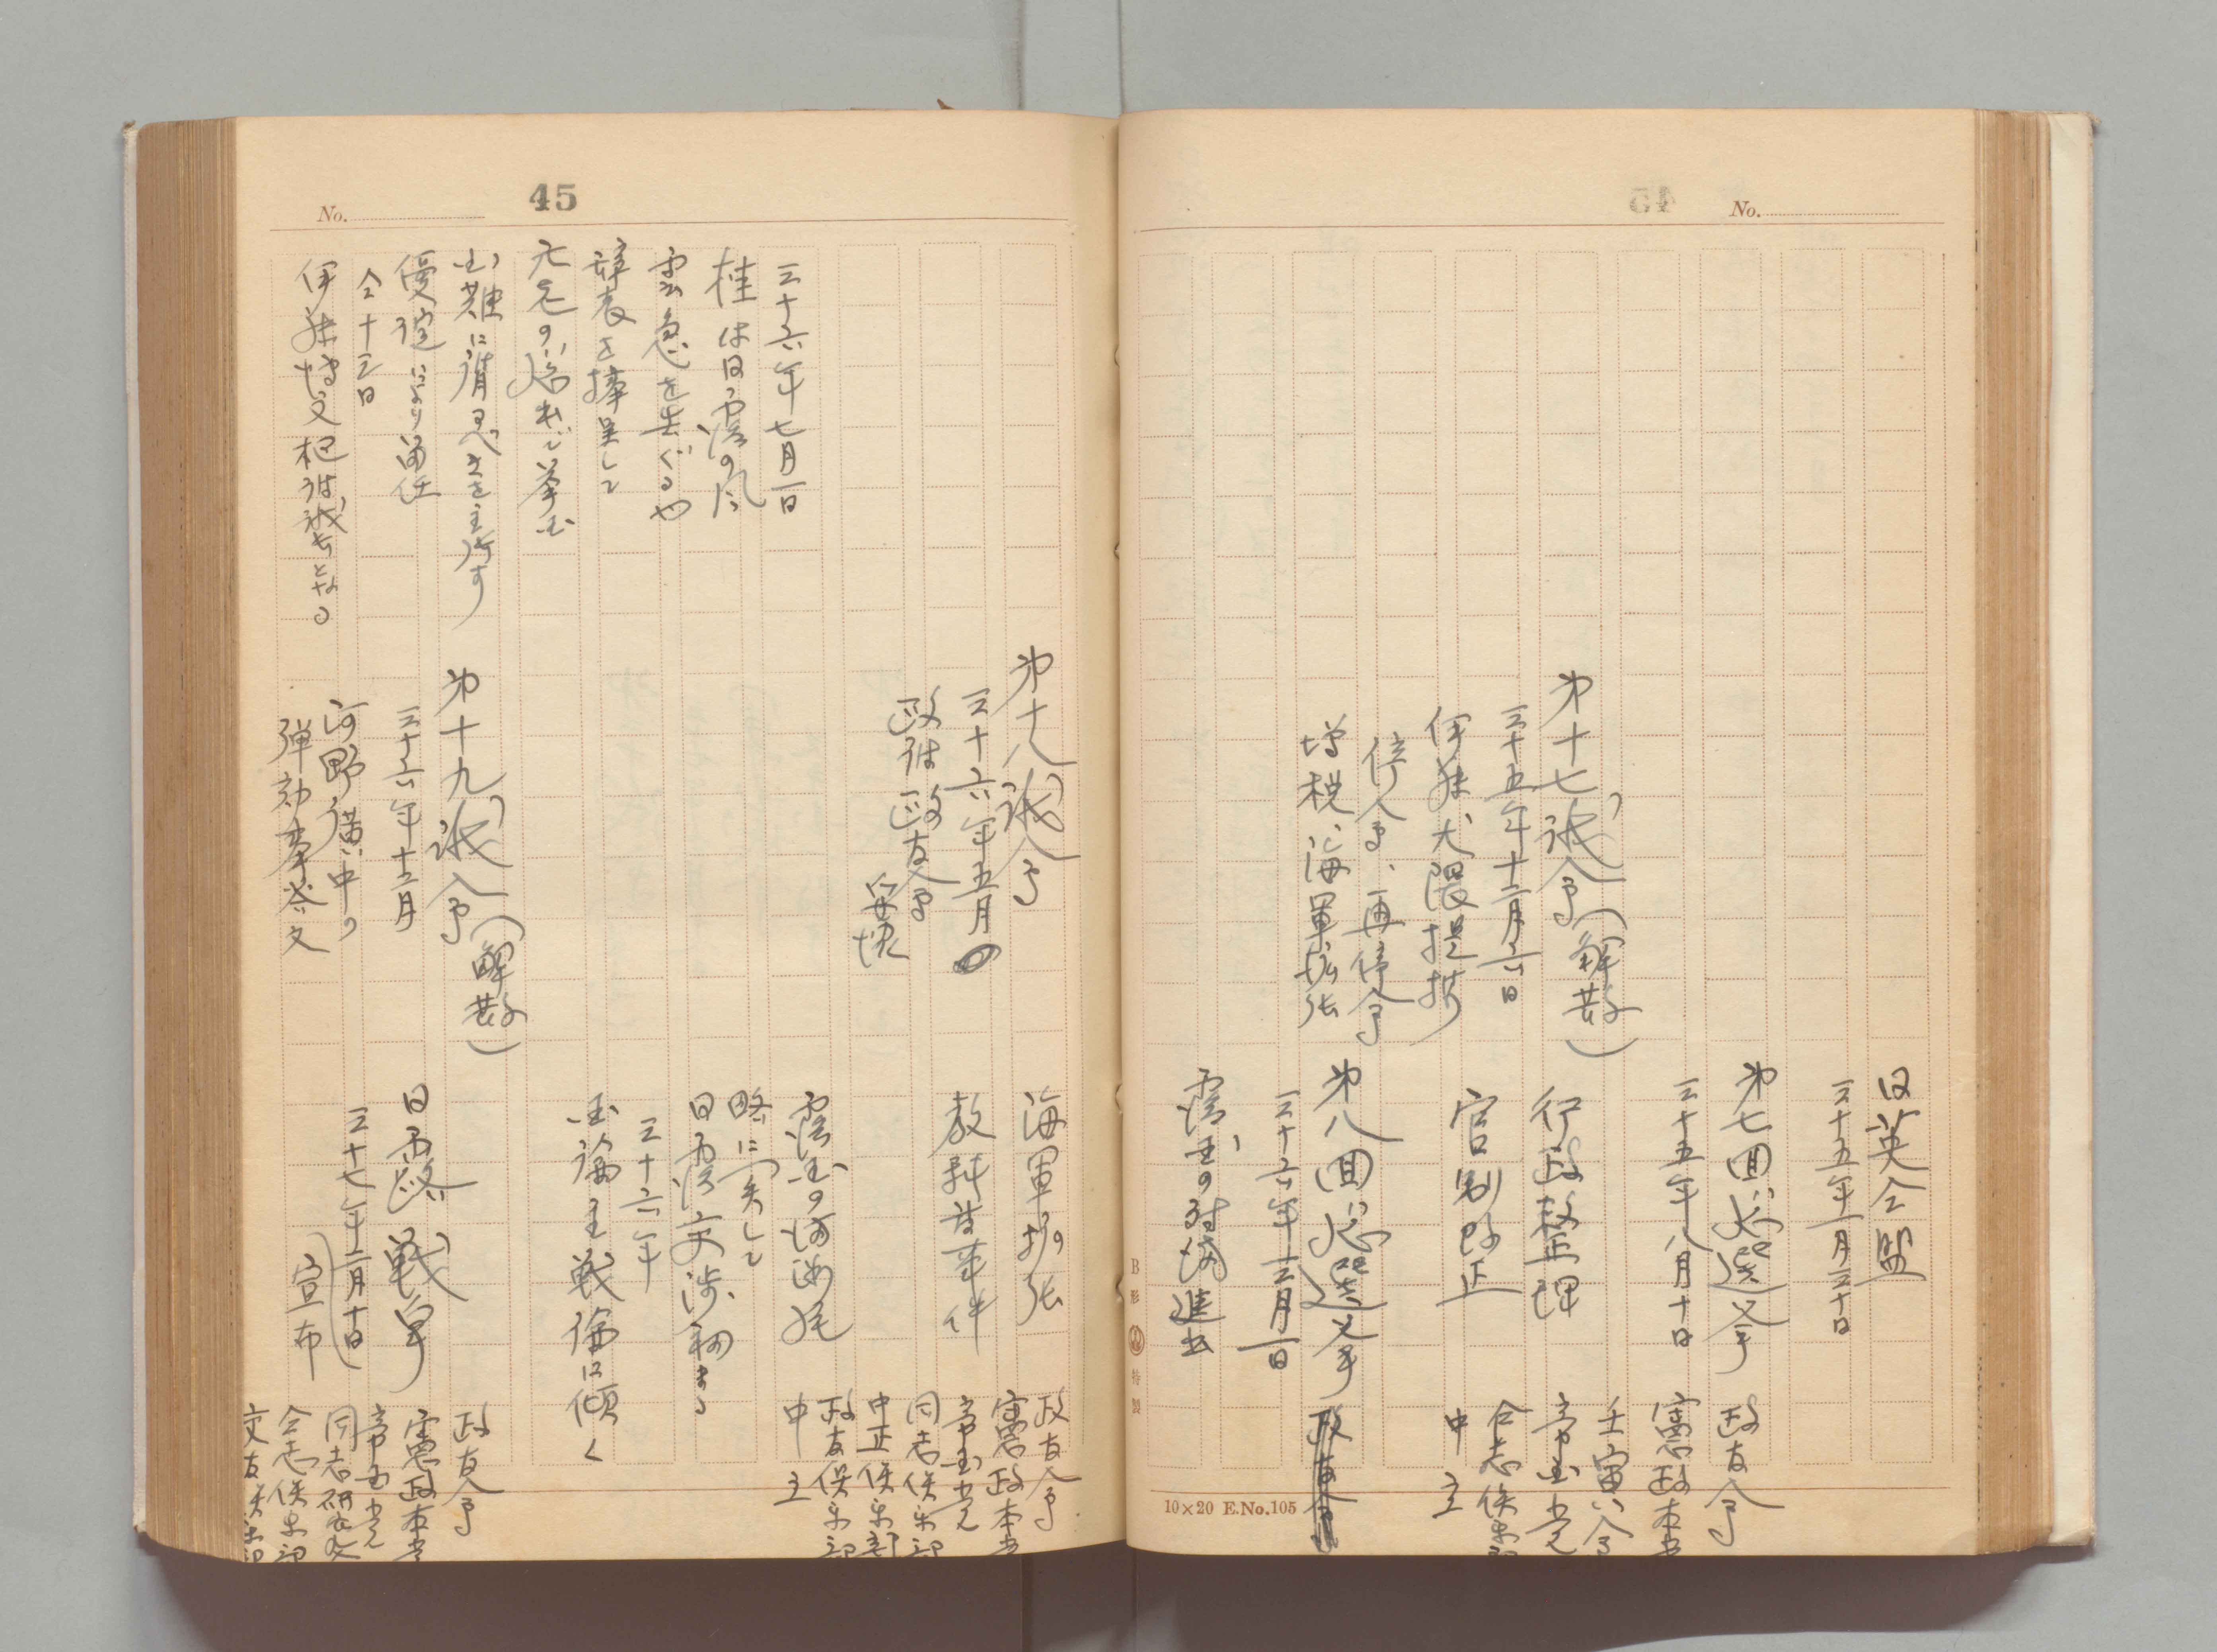 No.
日英仝盟
三十五年一月三十日
第七回総選挙
三十五年八月十日
政友会
憲政本党
壬寅会
帝国党
仝志倶楽部
中立
第十七議会（解散）
三十五年十二月六日
伊藤大隈提携
停会、再停会
増税、海軍拡張
行政整理
官制改正
第八回総選挙
三十六年三月一日
露国の対満進出
B形 特製
10×20 E.No.105
No.
45
第十八議会
三十六年五月
政府政友会
妥協
海軍拡張
教科書事件
政友会
憲政本党
帝国党
同志倶楽部
中正倶楽部
政友倶楽部
中立
三十六年七月一日
桂は日露の風
雲急を告ぐるや
辞表を捧呈して
元老の総出で挙国
国難に請ふべきを主張す
優諚により留任
仝十三日
伊藤博文枢府議長となる
露国の満洲経
略に関して
日露交渉初まる
三十六年
国論主戦論に傾く
第十九議会（解散）
三十六年十二月
河野広中の
弾劾奉答文
日露戦争
三十七年二月十日
宣布
政友会
憲政本党
帝国党
同志研究会
仝志倶楽部
交友倶楽部